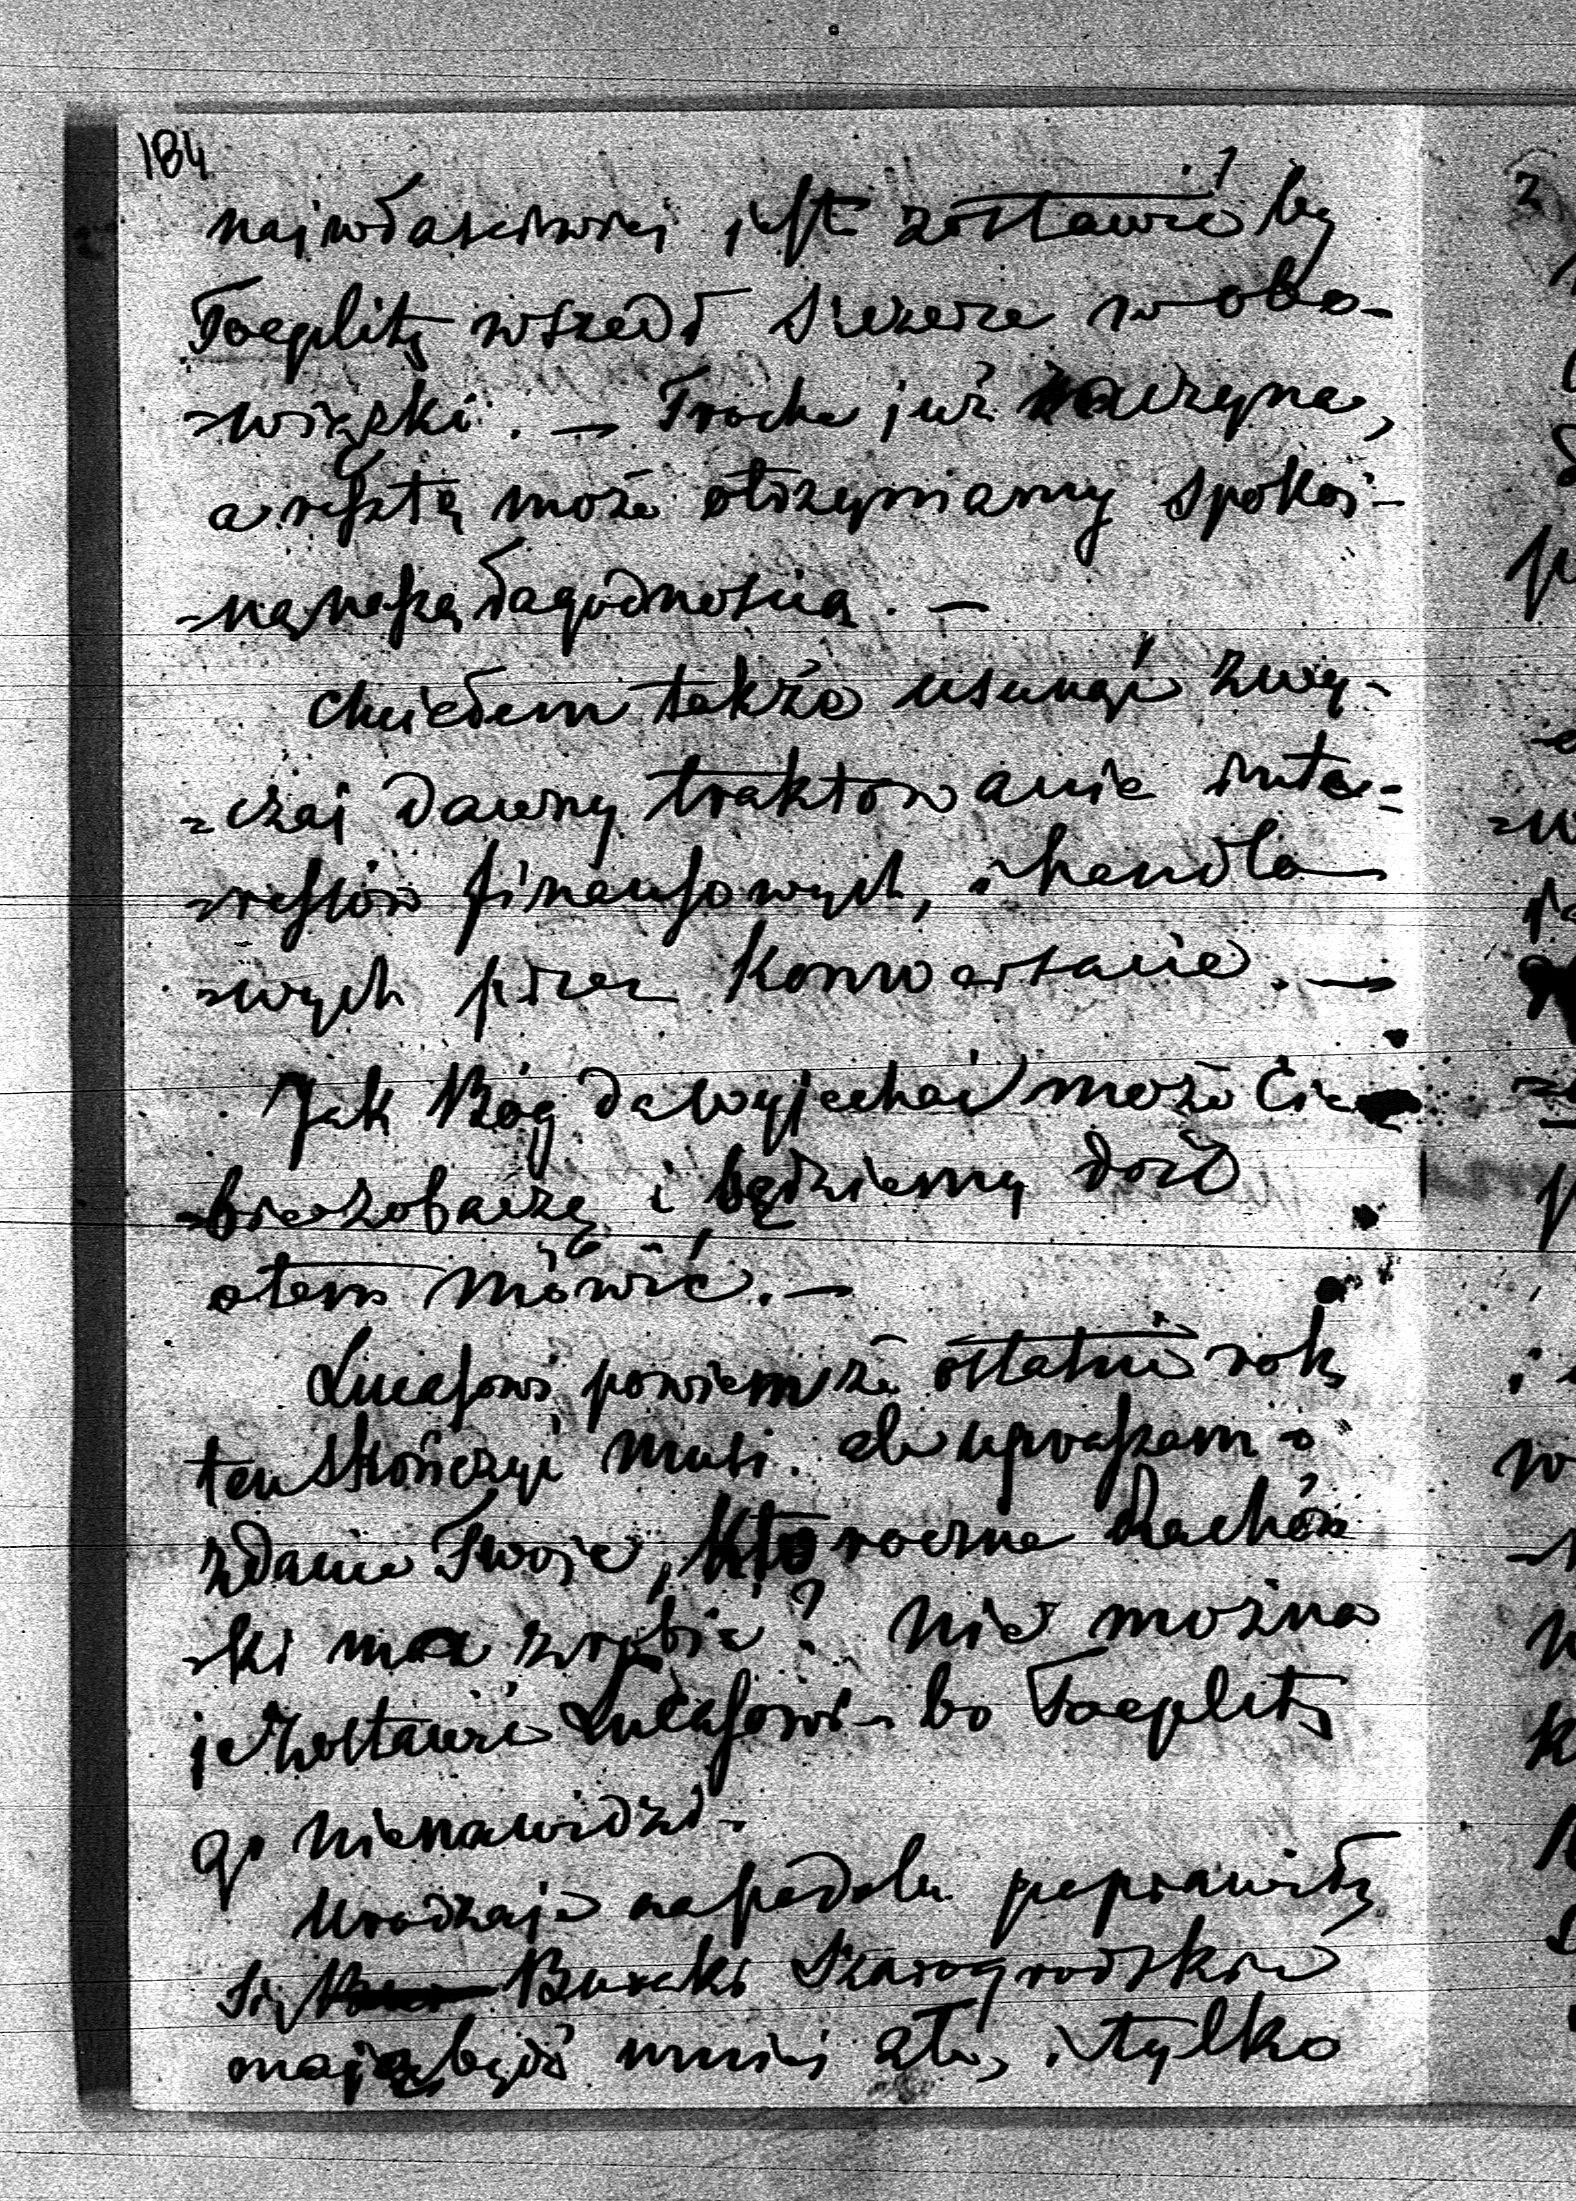 184
najwłaściwiej jest zostawić by
Toeplitz wszedł szczerze w obo-
-wiązki. — Trochę już zaczyna,
a resztę może otrzymamy spokoj-
-ną naszą łagodnością. —
Chciałem także usunąć zwy-
-czaj dawny traktowanie inte-
-ressów finansowych, i handlo-
-wych przez Konwersacie. —
Jak Bóg da wyjechać może Cie-
-bie zobaczę i będziemy dość
o tem mówić. —
Lucasowi powiem że ostatni rok
ten skończyć musi. ale upraszam o
zdanie Twoje, kto roczne Rachón
-ki ma zrobić? Nie można
je zostawić Lucasowi - bo Toeplitz
go nienawidzi.
Urodzaje na podolu poprawiły
się Buraki Szarogrodzkie
mają bydź mniej złe, i tylko